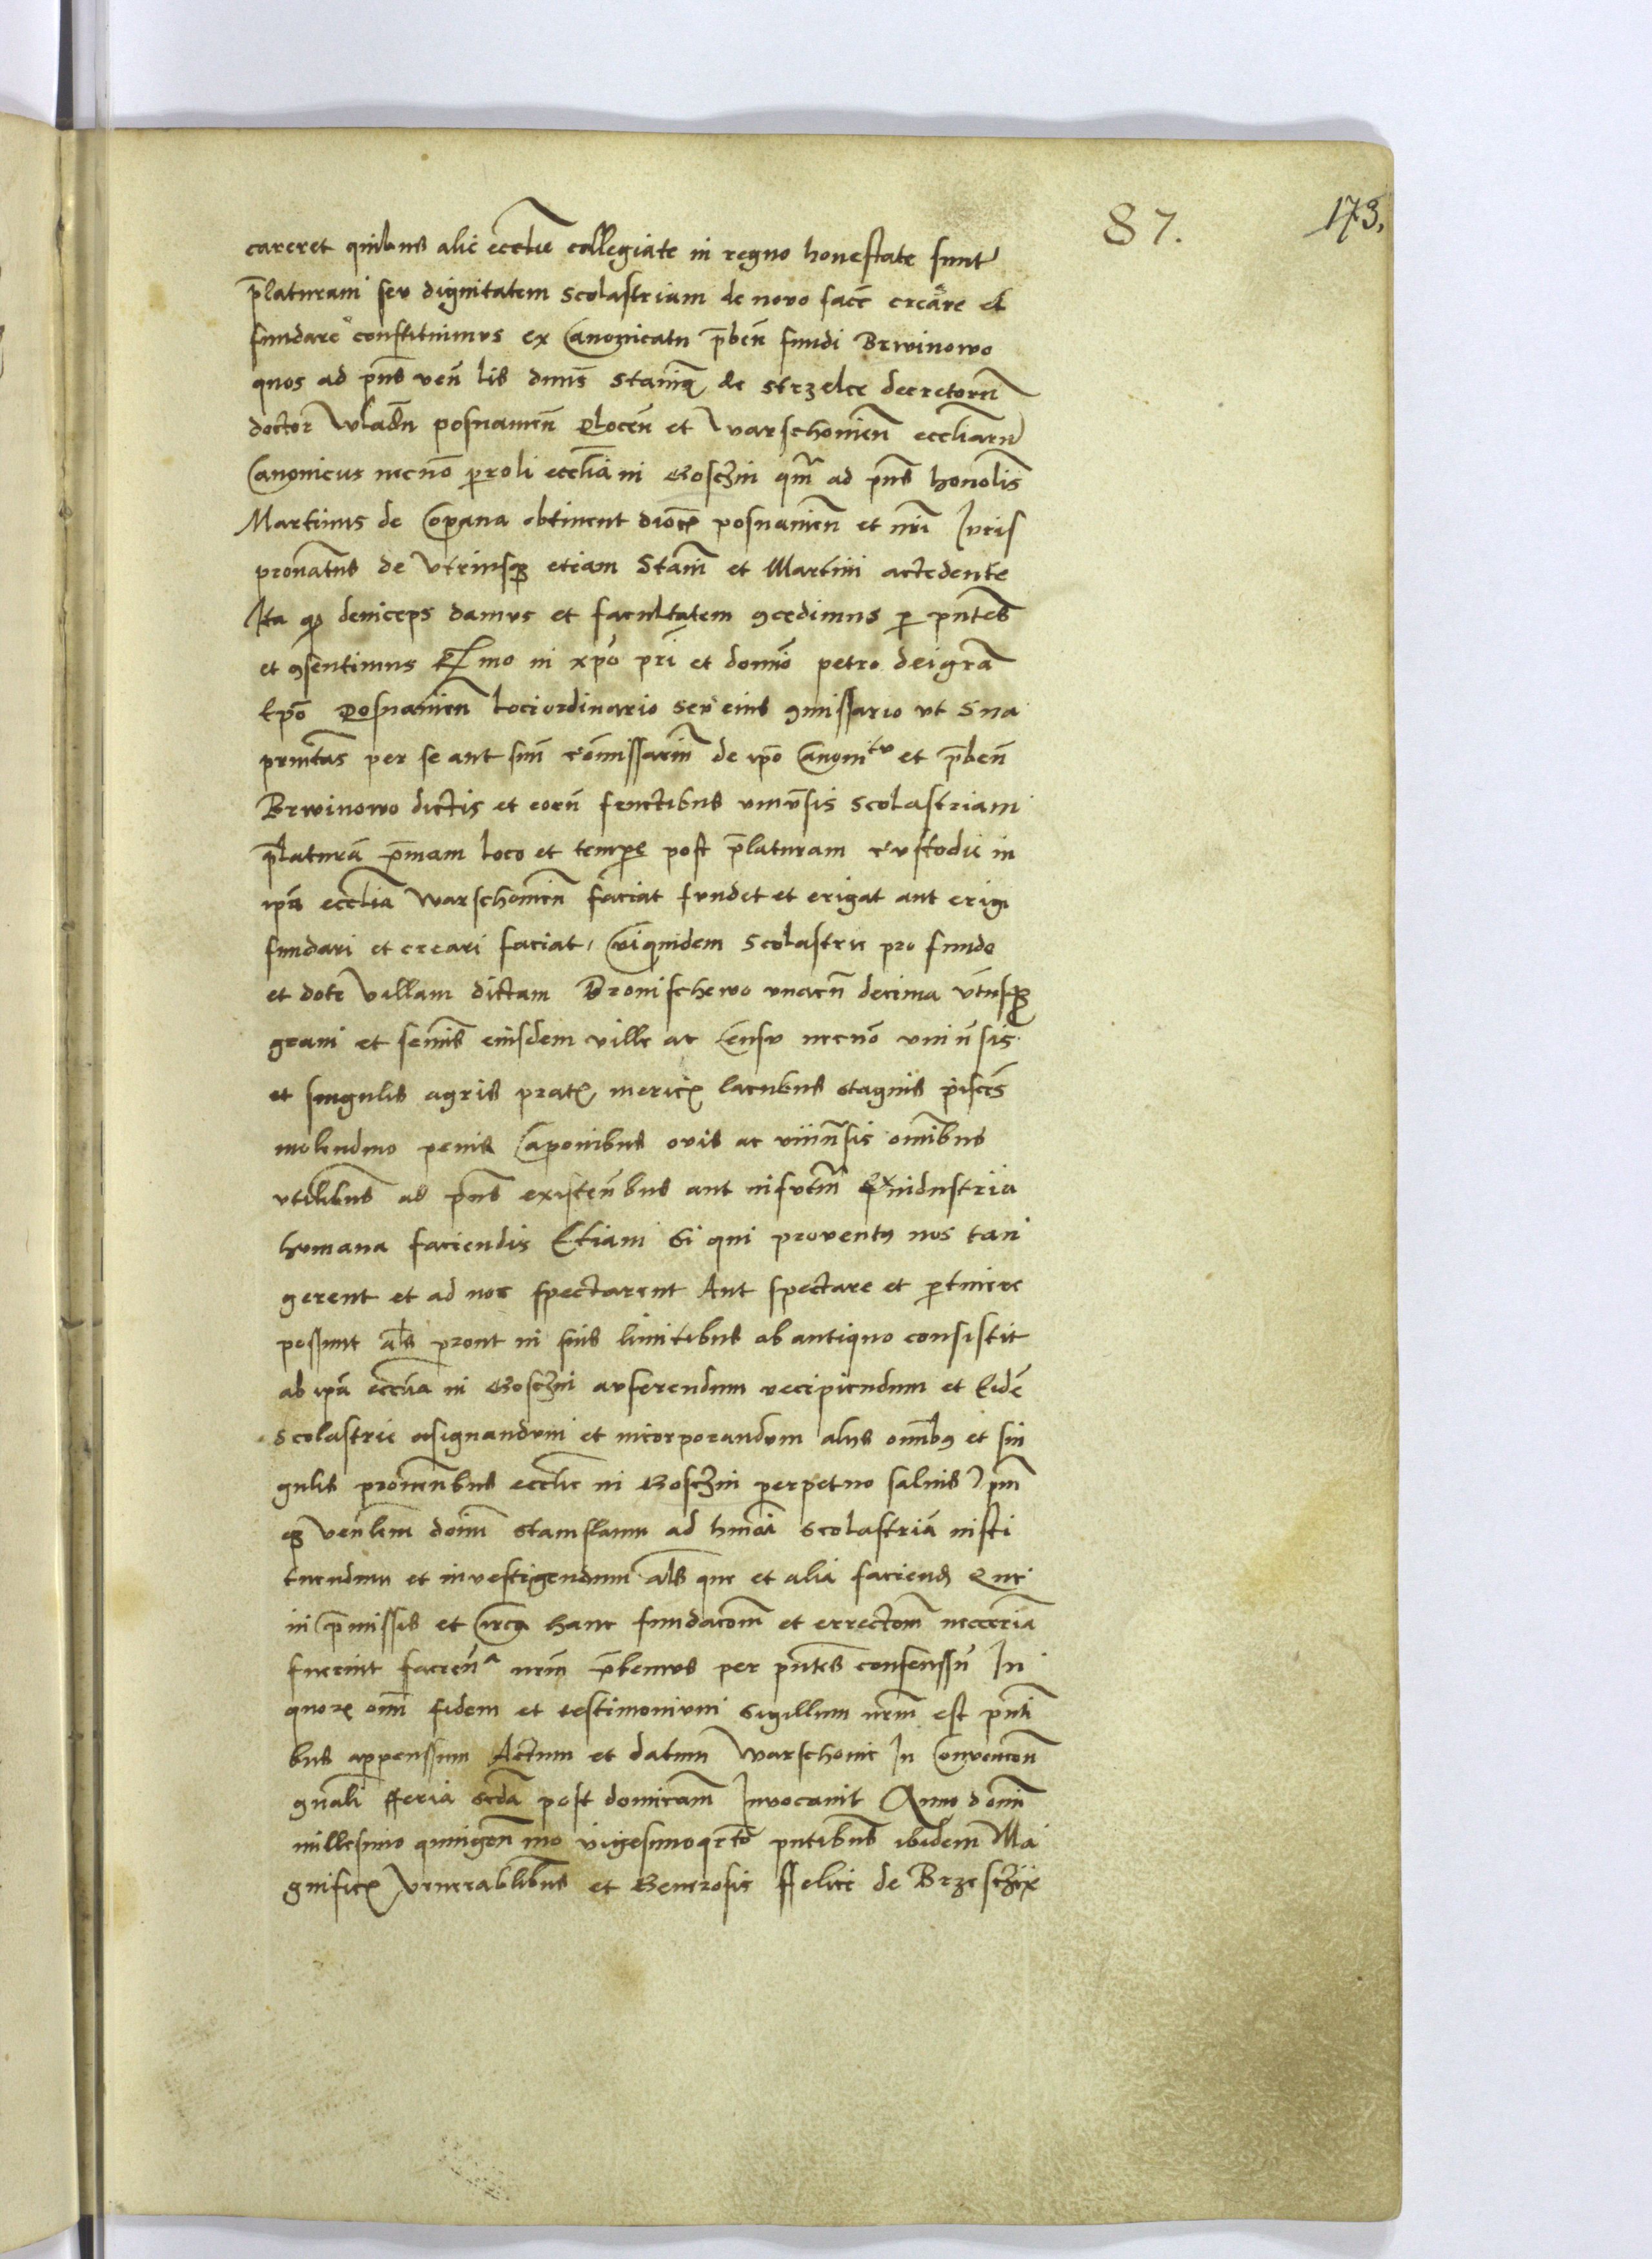 87.
173.
careret quibus alie eccłie collegiate in regno honestate sunt
p̄laturam seu dignitatem scolastriam de novo facē creare et
fundare constituimus ex Canonicatu p̄bēn fundi Brwinowo
quos ad p̄ns ven̄ lis dnūs Staniš de Strzelce decretorū
doctor Vladn̄ posnanien̄ Plocen̄ et Warschovien̄ eccliarū
Canonicus necnō p̄roli eccliā in Goschin quā ad p̄ns honolis
Martinus de Coprana obtinent dioce posnanien̄ et nr̄i Juris
pronat̄us de Utriusq̨ etiam Stani et Martini accedente
Ita q̨ deinceps damus et facultatem ꝯcedimus ꝑ pn̄tes
et ꝯsentimus R̄mo in xp̄o pr̄i et domīo petro dei gra̅
Ep̄o Posnanien̄ loci ordinario seu eius ꝯmissario ut sua
pr̄nitas per se aut suū cōmissariū de ip̄o Canonitu et p̄bēn
Brwinowo dictis et eorū fructibus univ̄sis scolastriam
p̄laturā p̄mam loco et tempore post p̄laturam custodie in
ip̄a ecclia Warschovien̄ faciat fundet et erigat aut erigi
fundari et creari faciat, Cuiquidem scolastrie pro fundo
et dote Villam dictam Bronischewo unacū decima utriusq̨
grani et seminis eiusdem ville ac Censu necnō univ̄sis
et singulis agris prat̨ meric̨ lacubus stagnis piscis
molendino penis Caponibus ovis ac univ̄sis omībus
utilibus ad p̄ns existen̄bus aut in futu̅ Ex industria
humana faciendis Etiam Si qui proventus nos tan
gerent et ad nos spectarent Aut spectare et ꝑtinere
possunt als prout in suis limitibus ab antiquo consistit
ab ip̄a ecclia in Goschin auferendum recipiendum et Eidē
scolastrie asignandum et incorporandum aliis omībus et sin
gulis proven̄bus ecclie in Goschin perpetuo salvis
q̨ venlem doīm Stanislaum ad hmōi scolastriā insti
tuendum et investigendum als que et alia faciend̨ Que
in p̄missis et circa hanc fundacōm et errectōm necceriā
fuerint facien̄a nrm̄ p̄bemus per pn̄tes consenssū In
quor̨ om̄ fidem et testimonium sigillum nrm̄ est pn̄ti
bus appenssum Actum et datum Warschovie In Convencōn
gn̄ali fferia scda post dominicam Invocavit Anno domī
millesimo quingen̄mo vigesimoqrto pn̄tibus ibidem Ma
gnific̨ Venerablibus et Generosis ffelici de Brzeschije